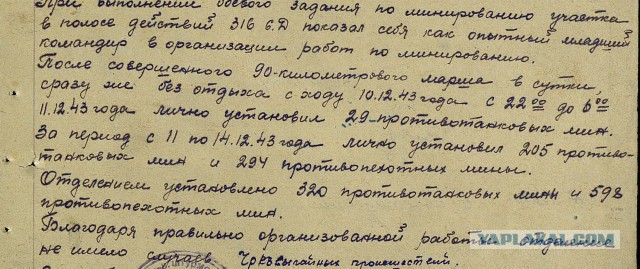 При выполнении боевого задания по минированию участка
в полосе действий 316 с.д показал себя как опытный младший
командир в организации работ по минированию.
После совершенного 90-километрового марша в сутки,
сразу же без отдыха с ходу 10.12.43 года с 22 00 до 6 00
11.12.43 года лично установил 29 противотанковых мин.
За период с 11 по 14.12.43 года лично установил 205 противо-
танковых мин и 294 противопехотных мины.
Отделением установлено 320 противотанковых мины и 598
противопехотных мин.
Благодаря правильно организованной работы отделение
не имело случаев чрезвычайных происшествий.
YAPLAKAL.COM